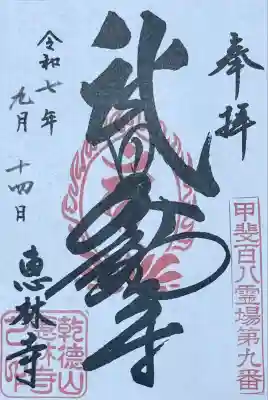 奉拝
甲斐百八霊場第九番
武田不動尊
令和七年
九月十四日
恵林寺
乾徳山